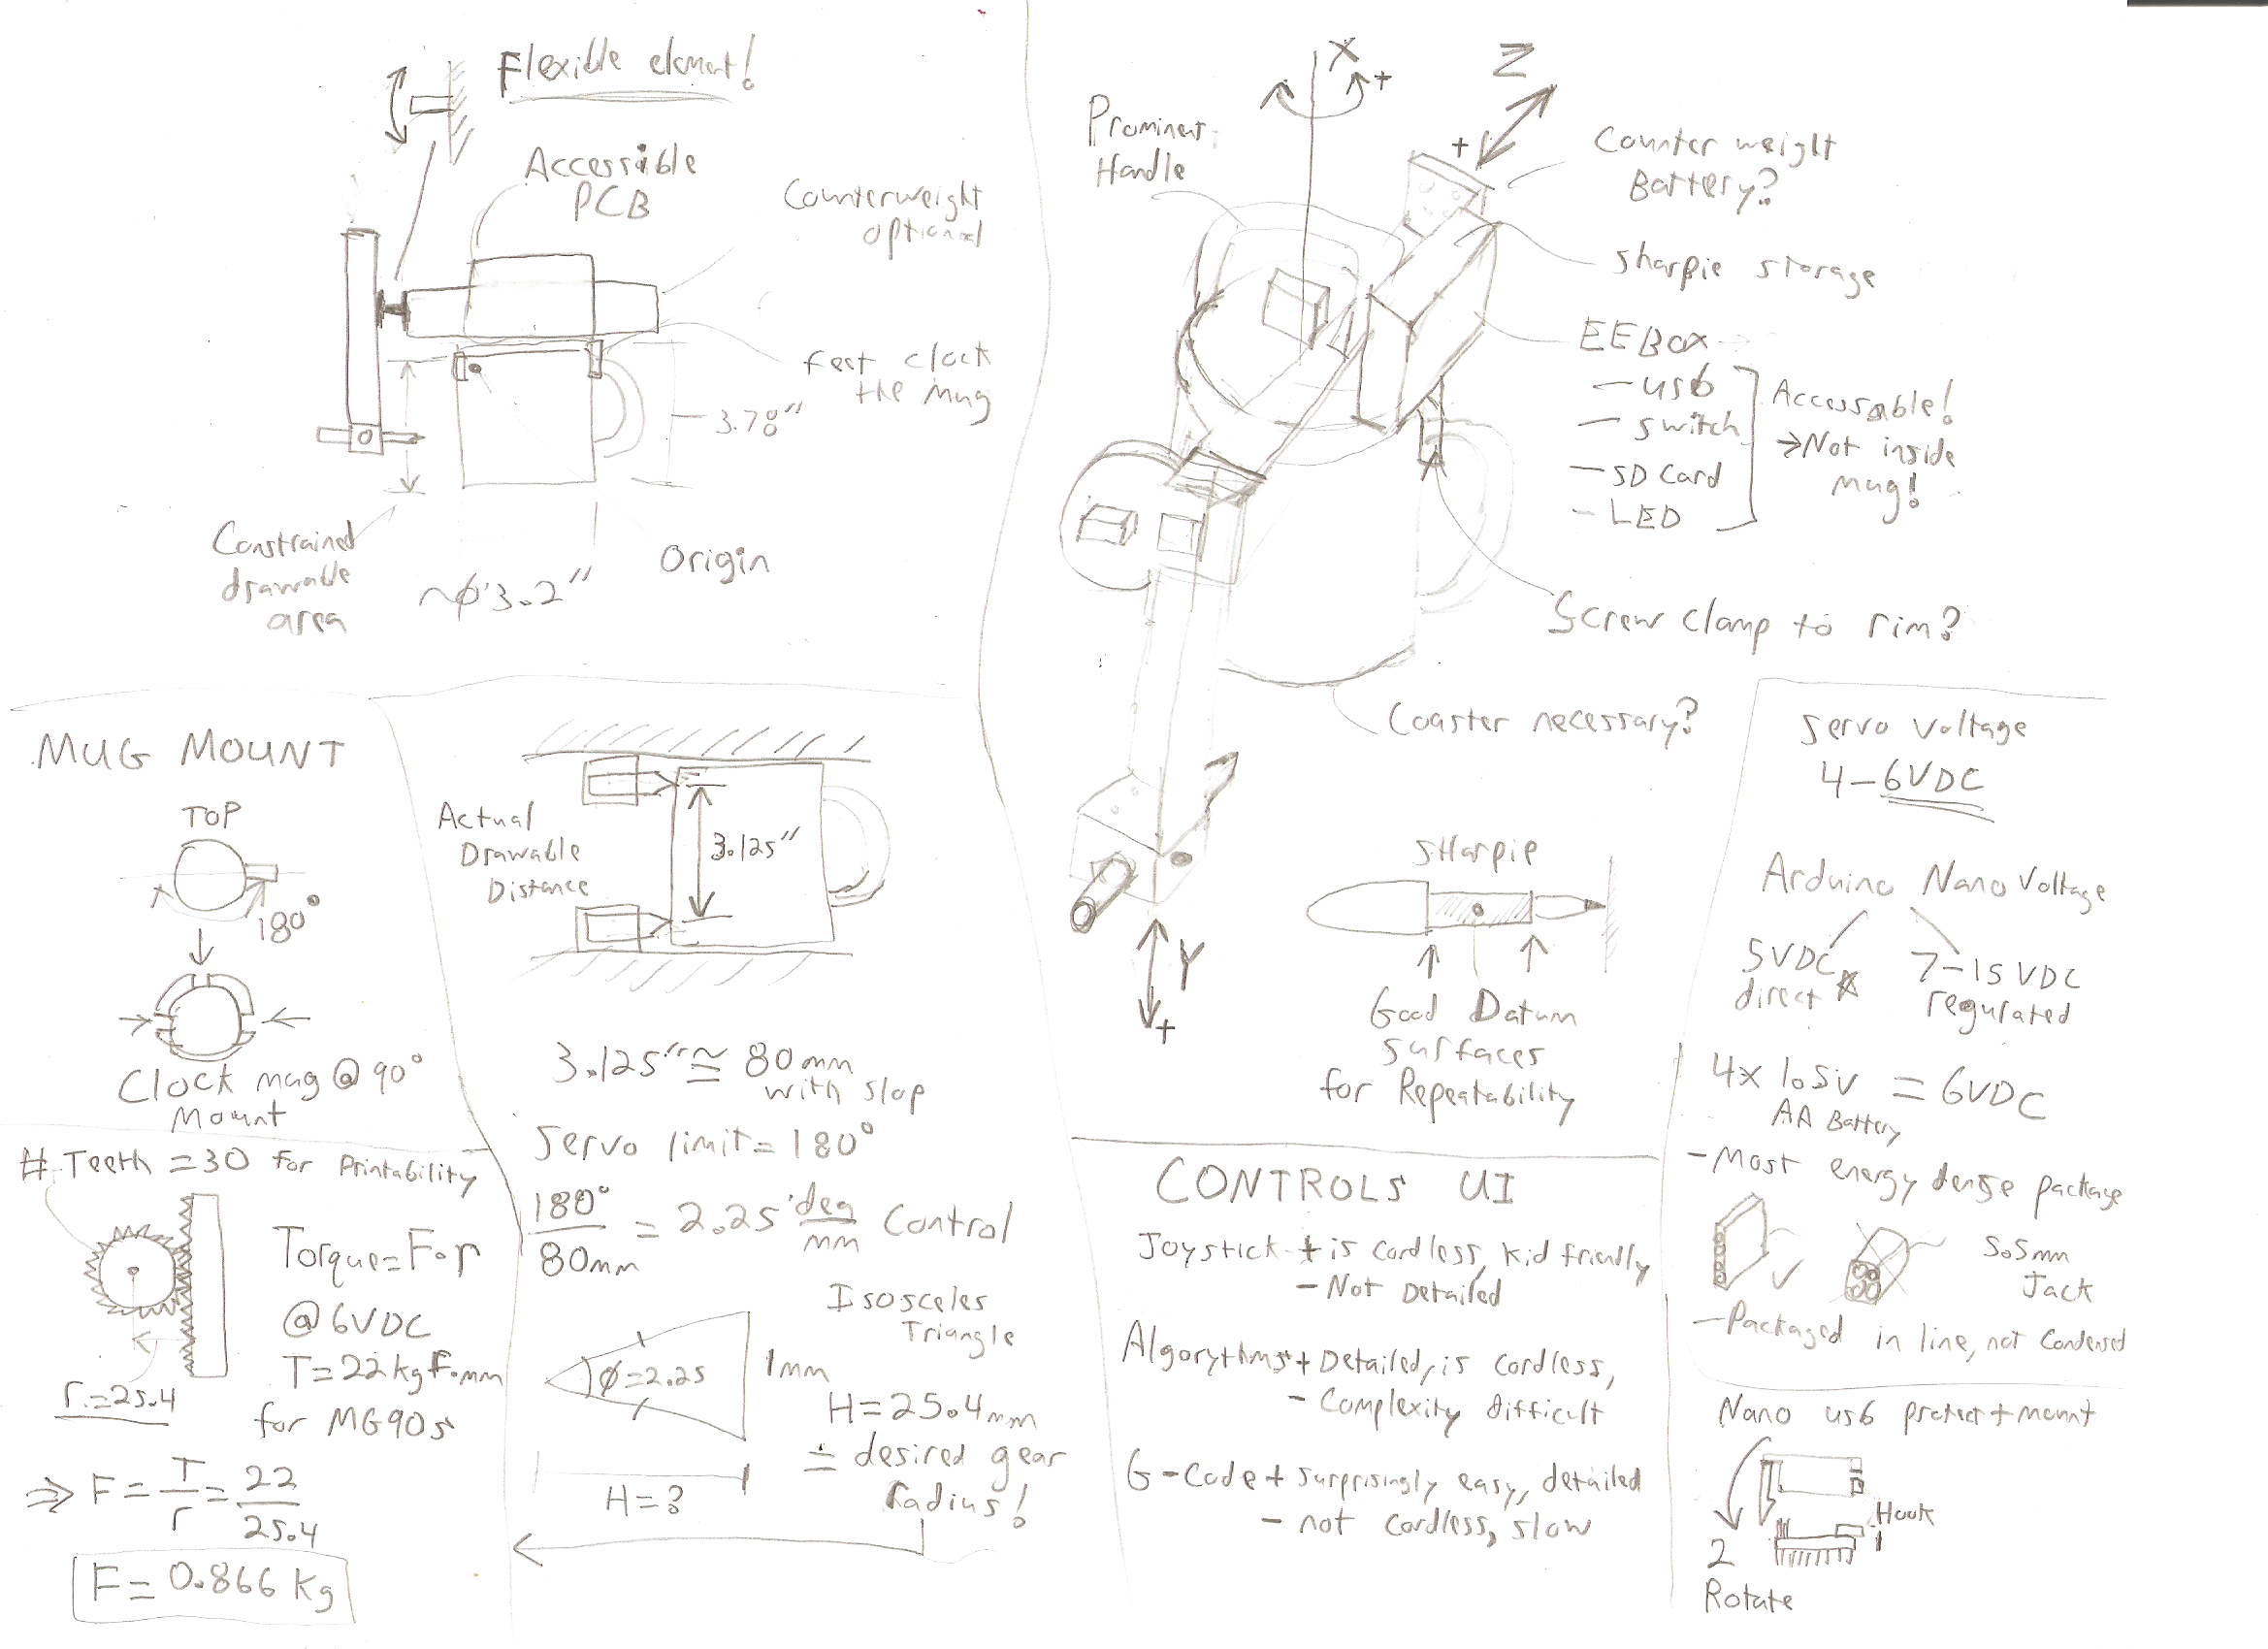 Flexible element!
Accessible
PCB
Counterweight
optional
feet clock
the mug
3.78"
Constrained
drawable
area
~φ 3.2"
Origin
X
+
Z
+
Prominent
Handle
Counter weight
Battery?
Sharpie storage
EEBox
- usb
- switch
- SD Card
- LED
Accessable!
→ Not inside
mug!
Screw clamp to rim?
Coaster necessary?
Y
+
Sharpie
Good Datum
surfaces
for Repeatability
MUG MOUNT
TOP
180°
Clock mug @ 90°
Mount
Actual
Drawable
Distance
3.125"
3.125" ≅ 80mm
with slop
Servo limit = 180°
180°
80mm
= 2.25 deg
mm
Control
Isosceles
Triangle
φ=2.25
1mm
H=?
H=25.4mm
≐ desired gear
radius!
# Teeth = 30 for Printability
Torque=F·r
@6VDC
T=22kgf·mm
for MG90s
r=25.4
⇒ F = T
r
= 22
25.4
F= 0.866 kg
CONTROLS UI
Joystick + is cordless, kid friendly
- Not Detailed
Algorythms + Detailed, is cordless,
- Complexity difficult
G-Code + surprisingly easy, detailed
- not cordless, slow
Servo Voltage
4-6VDC
Arduino Nano Voltage
5VDC
direct
7-15 VDC
regulated
4x 1.5v = 6VDC
AA Battery
- Most energy dense package
5.5mm
Jack
- Packaged in line, not condensed
Nano usb protect + mount
Hook
1
2
Rotate